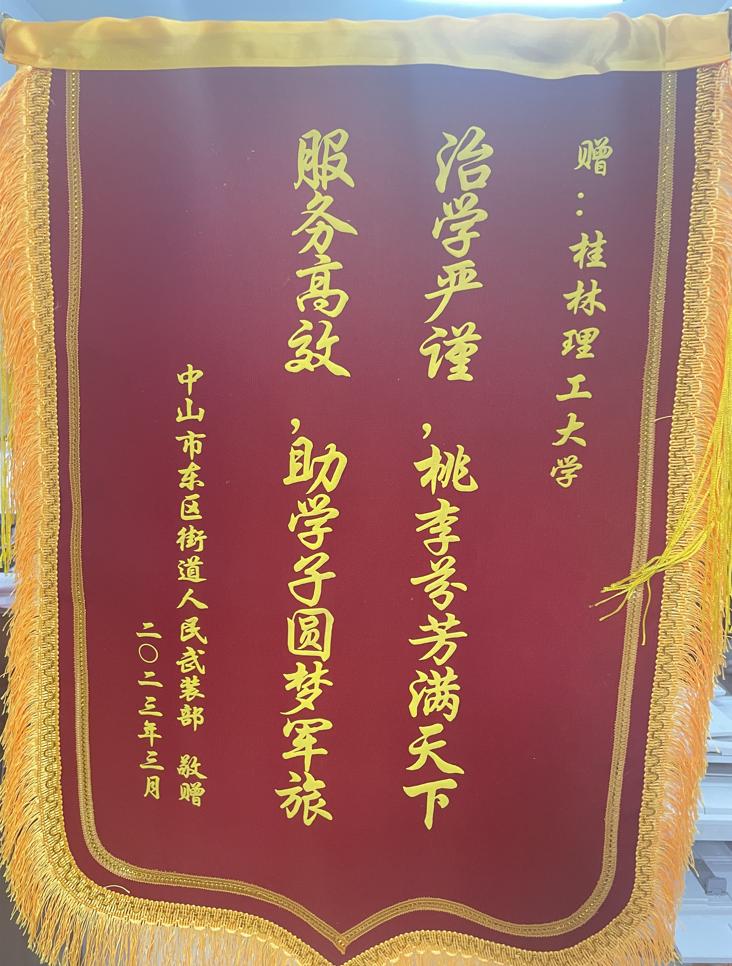 赠：桂林理工大学
治学严谨，桃李芬芳满天下
服务高效，助学子圆梦军旅
中山市东区街道人民武装部 敬赠
二〇二三年三月